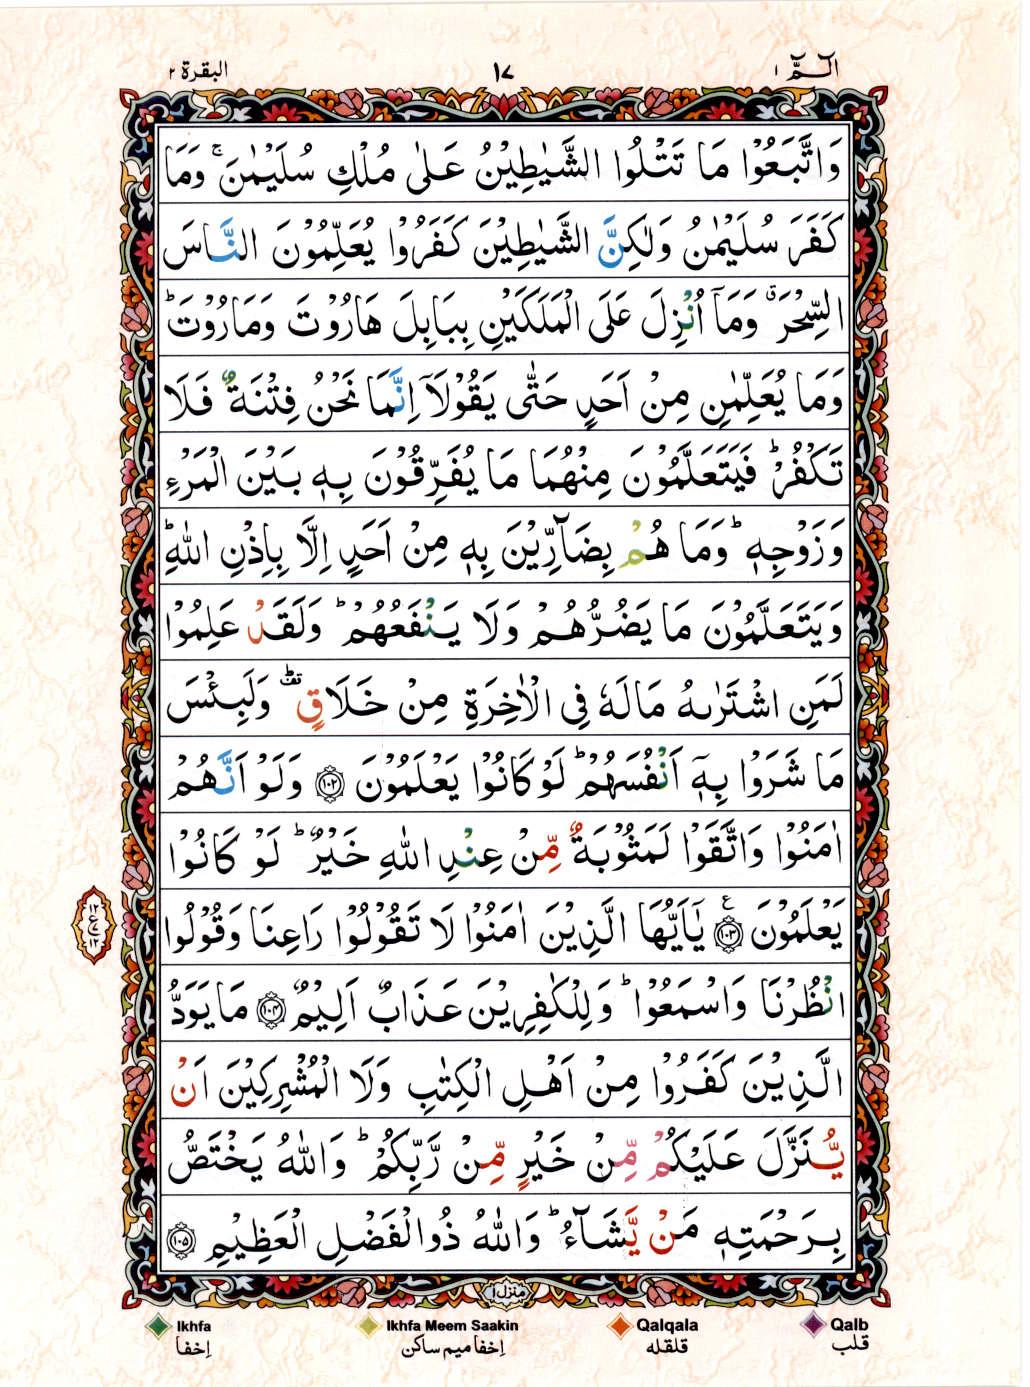 الٓـمّٓ ١
١٧
البقرة ٢
وَاتَّبَعُوْا مَا تَتْلُوا الشَّيٰطِيْنُ عَلٰى مُلْكِ سُلَيْمٰنَ ۚ وَمَا
كَفَرَ سُلَيْمٰنُ وَلٰكِنَّ الشَّيٰطِيْنَ كَفَرُوْا يُعَلِّمُوْنَ النَّاسَ
السِّحْرَ ۗ وَمَاۤ اُنْزِلَ عَلَى الْمَلَكَيْنِ بِبَابِلَ هَارُوْتَ وَمَارُوْتَ ؕ
وَمَا يُعَلِّمٰنِ مِنْ اَحَدٍ حَتّٰى يَقُوْلَاۤ اِنَّمَا نَحْنُ فِتْنَةٌ فَلَا
تَكْفُرْ ؕ فَيَتَعَلَّمُوْنَ مِنْهُمَا مَا يُفَرِّقُوْنَ بِهٖ بَيْنَ الْمَرْءِ
وَزَوْجِهٖ ؕ وَمَا هُمْ بِضَآرِّيْنَ بِهٖ مِنْ اَحَدٍ اِلَّا بِاِذْنِ اللّٰهِ ؕ
وَيَتَعَلَّمُوْنَ مَا يَضُرُّهُمْ وَلَا يَنْفَعُهُمْ ؕ وَلَقَدْ عَلِمُوْا
لَمَنِ اشْتَرٰىهُ مَا لَهٗ فِى الْاٰخِرَةِ مِنْ خَلَاقٍ ۛ ؕ وَلَبِئْسَ
مَا شَرَوْا بِهٖۤ اَنْفُسَهُمْ ؕ لَوْ كَانُوْا يَعْلَمُوْنَ ﴿۱۰۲﴾ وَلَوْ اَنَّهُمْ
اٰمَنُوْا وَاتَّقَوْا لَمَثُوْبَةٌ مِّنْ عِنْدِ اللّٰهِ خَيْرٌ ؕ لَوْ كَانُوْا
يَعْلَمُوْنَ ﴿۱۰۳﴾ ع يٰۤاَيُّهَا الَّذِيْنَ اٰمَنُوْا لَا تَقُوْلُوْا رَاعِنَا وَقُوْلُوا
انْظُرْنَا وَاسْمَعُوْا ؕ وَلِلْكٰفِرِيْنَ عَذَابٌ اَلِيْمٌ ﴿۱۰۴﴾ مَا يَوَدُّ
الَّذِيْنَ كَفَرُوْا مِنْ اَهْلِ الْكِتٰبِ وَلَا الْمُشْرِكِيْنَ اَنْ
يُّنَزَّلَ عَلَيْكُمْ مِّنْ خَيْرٍ مِّنْ رَّبِّكُمْ ؕ وَاللّٰهُ يَخْتَصُّ
بِرَحْمَتِهٖ مَنْ يَّشَآءُ ؕ وَاللّٰهُ ذُو الْفَضْلِ الْعَظِيْمِ ﴿۱۰۵﴾
١٢
ع ٧
١٢
منزل ١
Ikhfa
Ikhfa Meem Saakin
Qalqala
Qalb
اِخفا
اِخفا میم ساکن
قلقله
قلب